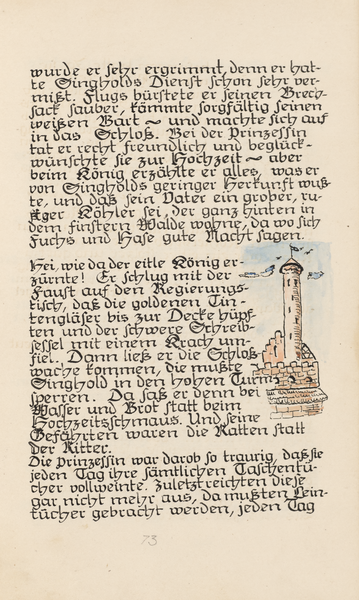 wurde er sehr ergrimmt, denn er hat-
te Singholds Dienst schon sehr ver-
mißt. Flugs bürstete er seinen Brech-
sack sauber, kämmte sorgfältig seinen
weißen Bart ~ und machte sich auf
in das Schloß. Bei der Prinzessin
tat er recht freundlich und beglück-
wünschte sie zur Hochzeit ~ aber
beim König erzählte er alles, was er
von Singholds geringer Herkunft wuß-
te, und daß sein Vater ein grober, ru-
ßiger Köhler sei, der ganz hinten in
dem finstern Walde wohne, da wo sich
Fuchs und Hase gute Nacht sagen.
Hei, wie da der eitle König er-
zürnte! Er schlug mit der
Faust auf den Regierungs-
tisch, daß die goldenen Tin-
tengläser bis zur Decke hüpf-
ten und der schwere Schreib-
sessel mit einem Krach um-
fiel. Dann ließ er die Schloß-
wache kommen, die mußte
Singhold in den hohen Turm
sperren. Da saß er denn bei
Wasser und Brot statt beim
Hochzeitsschmaus. Und seine
Gefährten waren die Ratten statt
der Ritter.
Die Prinzessin war darob so traurig, daß sie
jeden Tag ihre sämtlichen Taschentü-
cher vollweinte. Zuletzt reichten diese
gar nicht mehr aus, da mußten Lein-
tücher gebracht werden, jeden Tag
73